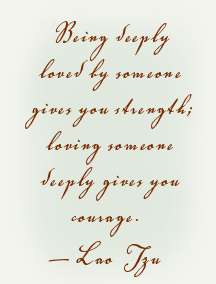 Being deeply
loved by someone
gives you strength;
loving someone
deeply gives you
courage.
— Lao Tzu